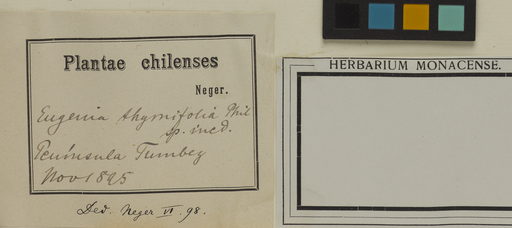 Plantae chilenses
Neger.
Eugenia thymifolia Phil
sp. ined.
Peninsula Tumbez
Nov 1895
Ded. Neger VI. 98.
HERBARIUM MONACENSE.